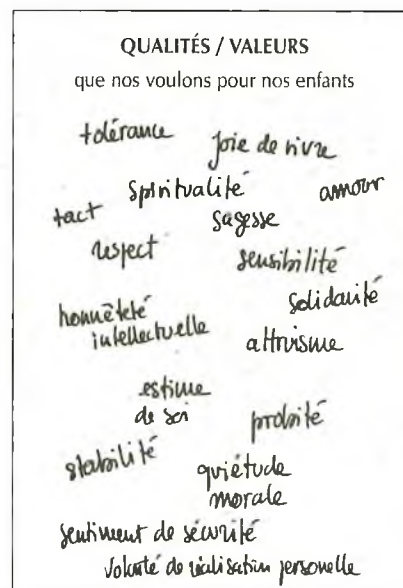 QUALITÉS / VALEURS
que nos voulons pour nos enfants
tolérance
joie de vivre
spiritualité
amour
tact
sagesse
respect
sensibilité
solidarité
honnêteté
intellectuelle
altruisme
estime
de soi
probité
stabilité
quiétude
morale
sentiment de sécurité
volonté de réalisation personelle